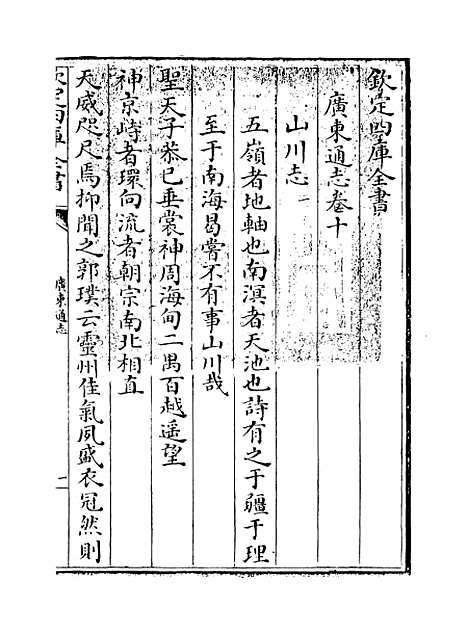 欽定四庫全書
廣東通志卷十
山川志一
五嶺者地軸也南溟者天池也詩有之于疆于理
至于南海曷嘗不有事山川哉
聖天子恭己垂裳神周海甸二禺百越遥望
神京峙者環向流者朝宗南北相直
天威咫尺焉抑聞之郭璞云靈州佳氣夙盛衣冠然則
欽定四庫全書
廣東通志
一